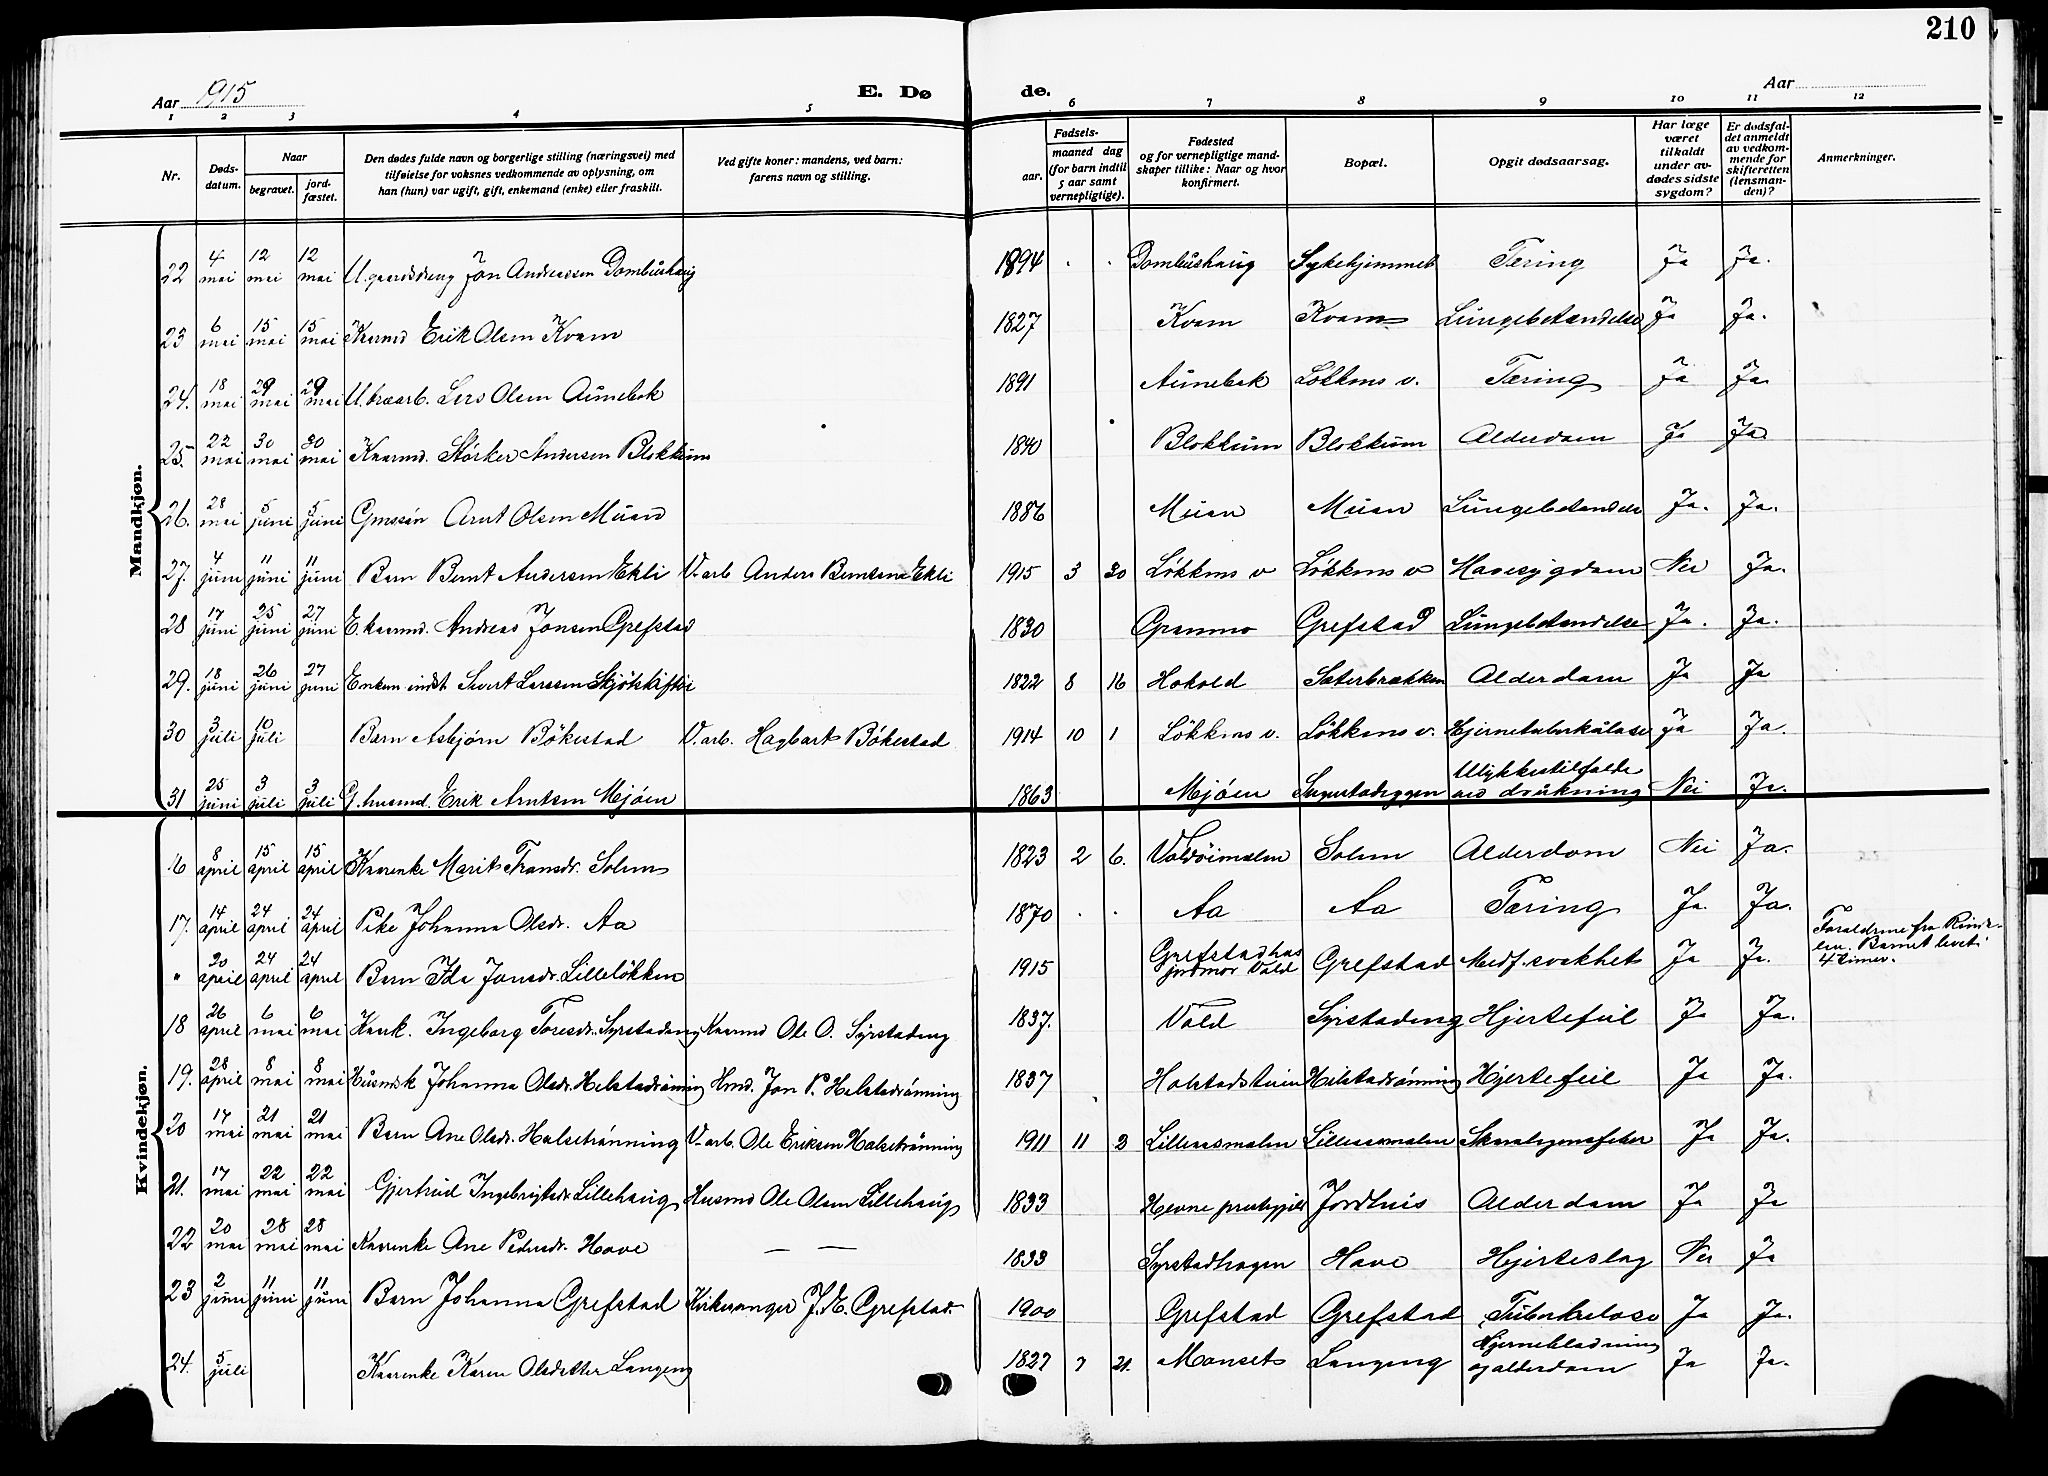 210
Aar 1915 E. Dø de. Aar
1 2 3 4 5 6 7 8 9 10 11 12
Nr. Døds-datum. Naar begravet. jord-fæstet. Den dødes fulde navn og borgerlige stilling (næringsvei) med tilføielse for voksnes vedkommende av oplysning, om han (hun) var ugift, gift, enkemand (enke) eller fraskilt. Ved gifte koner: mandens, ved barn: farens navn og stilling. Fødsels- aar. maaned dag (for barn indtil 5 aar samt vernepligtige). Fødested og for vernepligtige mand-skaper tillike: Naar og hvor konfirmert. Bopæl. Opgit dødsaarsag. Har læge været tilkaldt under av-dødes sidste sygdom? Er dødsfal-det anmeldt av vedkom-mende for skifteretten (lensman-den)? Anmerkninger.
Mandkjøn.
22 4 mai 12 mai 12 mai U. gaardsdreng Jon Andreassen Dombushaug 1894 . . Dombushaug Sykehjemmet Tæring Ja Ja.
23 6 mai 15 mai 15 mai Kaarmd Erik Olsen Kvam 1827 Kvam Kvam Lungebetændelse Ja Ja.
24. 18 mai 29 mai 29 mai Lars Olsen Aunebak 1891 Aunebak Løkkens v. Tæring Ja Ja.
25. 22 mai 30 mai 30 mai Kaarmd. Størker Andersen Blokkum 1840 Blokkum Blokkum Alderdom Ja Ja.
26. 28 mai 5 juni 5 juni Grmssøn Arnt Olsen Muan 1886 Muan Muan Lungebetændelse Ja. Ja.
27. 4 juni 11 juni 11 juni Barn Bernt Andersen Ekli V. arb. Anders Berntsen Ekli 1915 3 20 Løkkens v Løkkens v Mavesygdom Nei Ja.
28 17 juni 25 juni 27 juni E. kaarmd. Andreas Jonsen Grefstad 1830 Gramo Grefstad Lungebetændelse Ja. Ja.
29. 18 juni 26 juni 27 juni Enkem. indst. Sivert Larssen Skjøtskift 1822 8 16 Hokold Sæterbrækken Alderdom Ja Ja
30 3 juli 10 juli Barn Asbjørn Bøkestad V. arb. Hagbart Bøkestad 1914 10 1 Løkkens v. Løkkens v. Hjernetuberkulose Ja Ja.
31 25 juni 3 juli 3 juli G. husmd. Erik Arntsen Mjøen 1863 Mjøen Ulykkestilfælde ved drukning Nei Ja.
Kvindekjøn.
16 8 april 15 april 15 april Kaarenke Marit Fransdr. Solem 1823 2 6. Voldøimalen Solem Alderdom Nei Ja.
17. 14 april 24 april 24 april Pike Johanna Olsdr. Aa 1870 . . Aa Aa Tæring Ja. Ja.
" 20 april 24 april 24 april Barn Ida Jonsdr. Lilleløkken 1915 Grefstadhus jordmor Vold Grefstad Medf. svakhet Ja Ja. Forældrene fra Rindalen. Barnet levet 4 timer.
18 26 april 6 mai 6 mai Kaark. Ingeborg Toresdr. Syrstadeng Kaarmd Ole O. Syrstadeng 1837. Vold Syrstadeng Hjertefeil Ja Ja.
19. 28 april 8 mai 8 mai Husmdsk Johanna Olsdr. Helstadrønning Hmd. Jon P. Helstadrønning 1837 Holstadstuen Helstadrønning Hjertefeil Ja Ja.
20 17 mai 21 mai 21 mai Barn Ane Olsdr. Halsetrønning V. arb. Ole Eriksen Halsetrønning 1911 11 3 Lilleaasmalen Lilleaasmalen Skarlagensfeber Ja Ja.
21. 17 mai 22 mai 22 mai Gjertrud Ingebrigtsdr. Lillehaug Husmd Ole Olsen Lillehaug 1833 Hevne prestegjeld Jordhus Alderdom Ja Ja
22 20 mai 28 mai 28 mai Kaarenke Ane Pedersdr. Hove — — 1833 Syrstadhagen Hove Hjerteslag Nei Ja
23 2 juni 11 juni 11 juni Barn Johanna Grefstad Kirkesanger J. E. Grefstad. 1900 Grefstad Grefstad Tuberkulose Ja Ja.
24. 5 juli Kaarenke Karen Olsdatter Langeng 1827 7 21. Monset Langeng Hjerneblødning og alderdom Ja Ja.